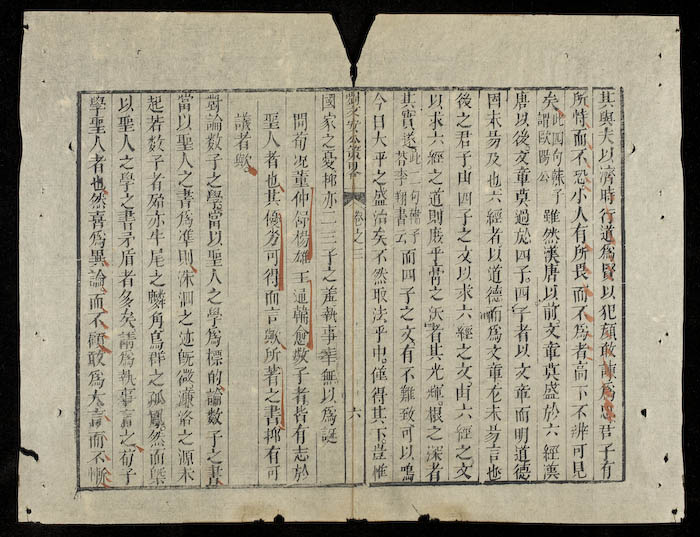 其與夫以濟時行道爲賢以犯顏敢諫爲忠君子有
所恃而不恐小人有所畏而不爲者高下不辨可見
矣此四句蘇子謂歐陽公雖然漢唐以前文章莫盛於六經漢
唐以後文章莫過於四子四子者以文章而明道德
因未易及也六經者以道德而爲文章尤未易言也
後之君子由四子之文以求六經之文由六經之文
以求六經之道則庶乎膏之沃者其光輝根之深者
其實遂此二句韓子荅李翔書云而四子之文有不難致可以鳴
今日大平之盛治矣不然取法乎中僅得其下豈惟
卷之三 六
國家之憂抑亦二三子之羞執事幸無以爲誕
問荀况董仲舒楊雄王通韓愈數子者皆有志於
聖人者也其優劣可得而言歟所著之書抑有可
議者歟
對論數子之學當以聖人之學爲標的論數子之書
當以聖人之書爲準則洙泗之迹旣微濂洛之源未
起若數子者殆亦牛尾之麟角鳥群之孤鳳然而槩
以聖人之學之書矛盾者多矣請爲執事言之荀子
學聖人者也然喜爲異論而不顧敢爲大言而不慚